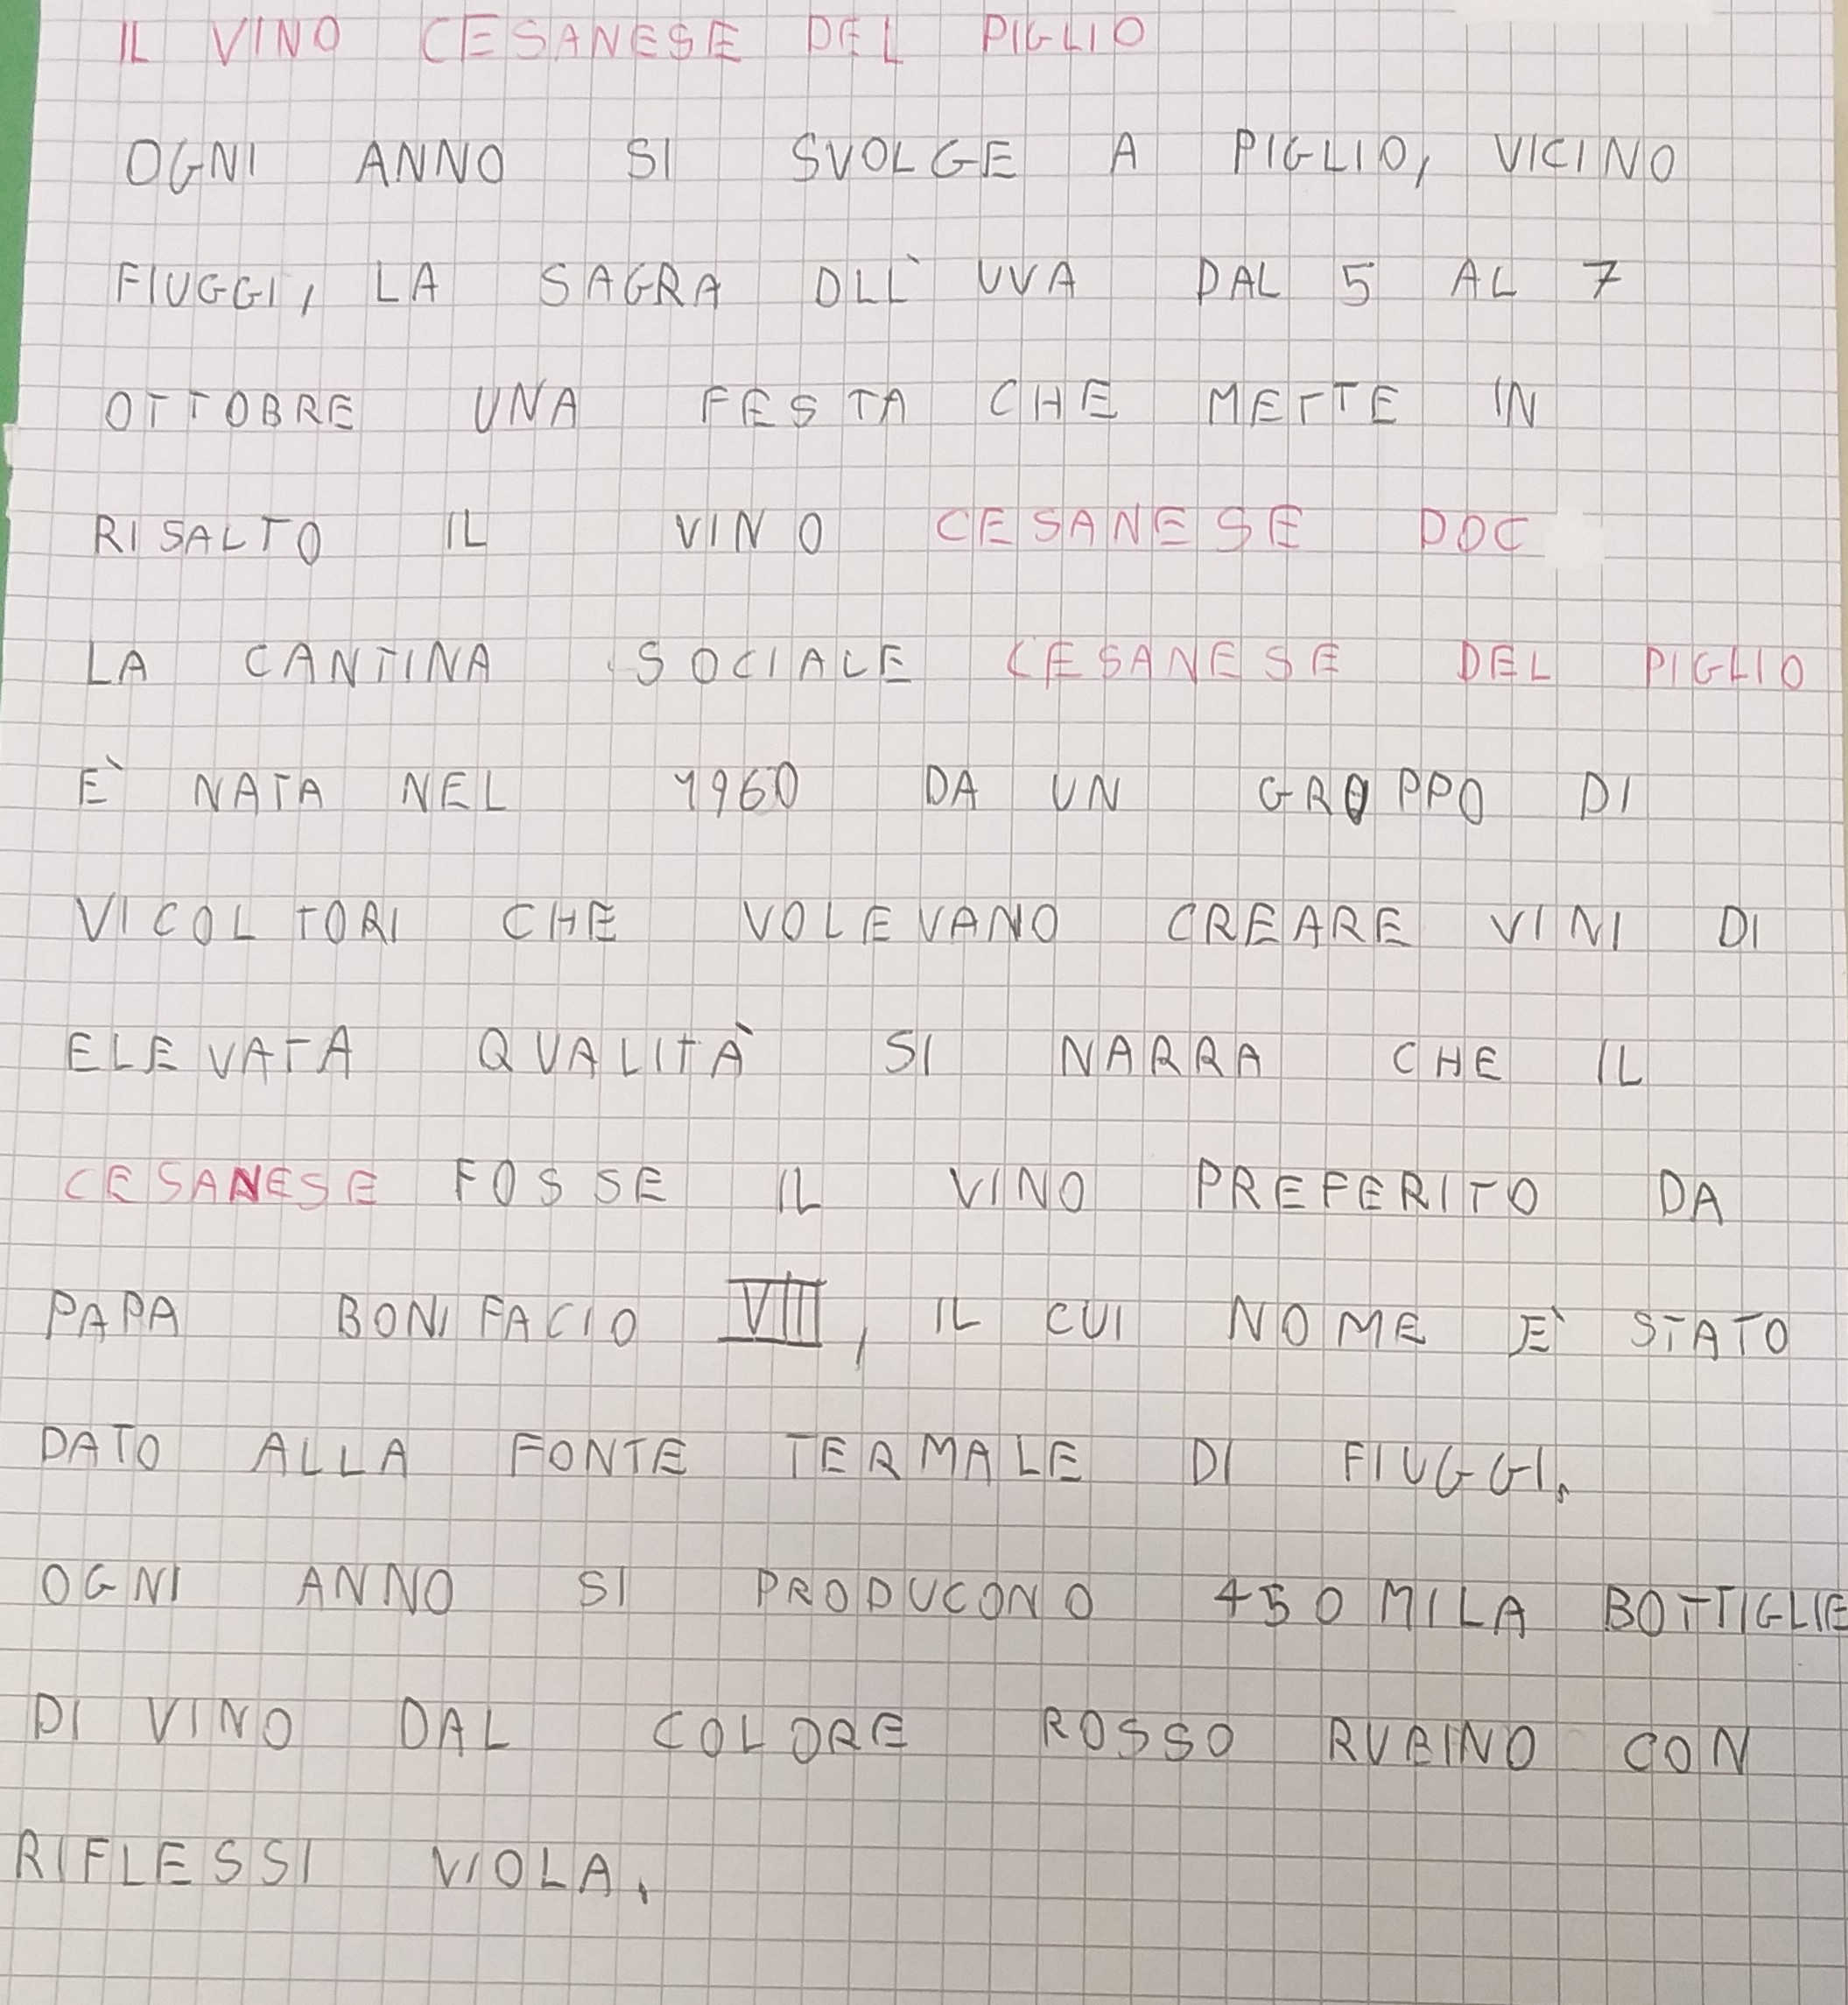 IL VINO CESANESE DEL PIGLIO
OGNI ANNO SI SVOLGE A PIGLIO, VICINO
FIUGGI, LA SAGRA DLL' UVA DAL 5 AL 7
OTTOBRE UNA FESTA CHE METTE IN
RISALTO IL VINO CESANESE DOC
LA CANTINA SOCIALE CESANESE DEL PIGLIO
È NATA NEL 1960 DA UN GROPPO DI
VICOLTORI CHE VOLEVANO CREARE VINI DI
ELEVATA QUALITÀ SI NARRA CHE IL
CESANESE FOSSE IL VINO PREFERITO DA
PAPA BONIFACIO VIII, IL CUI NOME È STATO
DATO ALLA FONTE TERMALE DI FIUGGI.
OGNI ANNO SI PRODUCONO 450 MILA BOTTIGLIE
DI VINO DAL COLORE ROSSO RUBINO CON
RIFLESSI VIOLA.